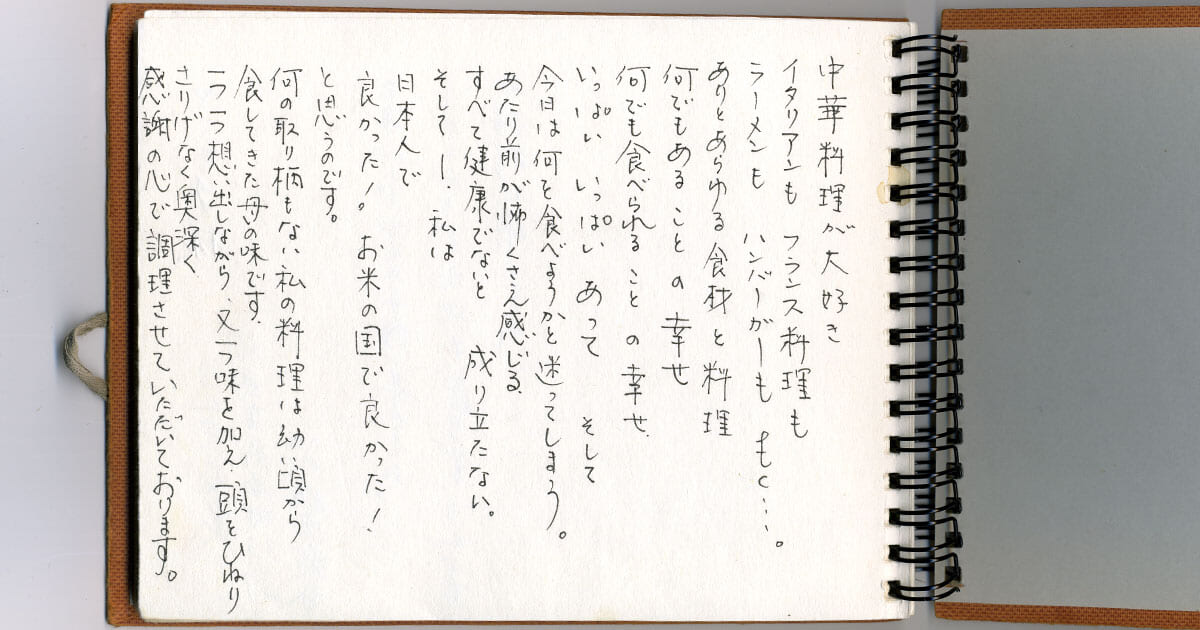 中華料理が大好き
イタリアンも フランス料理も
ラーメンも ハンバーガーも もc・・・。
ありとあらゆる食材と料理
何でもあることの幸せ
何でも食べられることの幸せ.
いっぱい いっぱい あって そして
今日は何を食べようかと迷ってしまう。
あたり前が怖くさえ感じる.
すべて健康でないと 成り立たない。
そしてー. 私は
日本人で
良かった! お米の国で良かった!
と思うのです。
何の取り柄もない私の料理は幼い頃から
食してきた母の味です.
一つ一つ想い出しながら、又一つ味を加え. 頭をひねり
さりげなく奥深く
感謝の心で調理させていただいております。